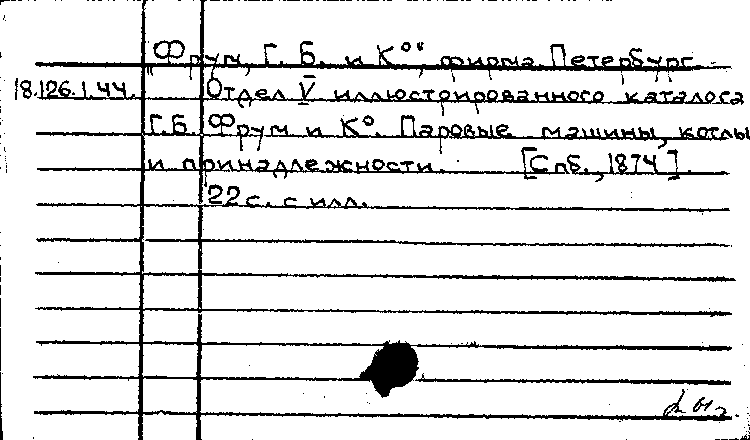 „Фрум, Г. Б. и К°“, фирма. Петербург.
18.126.1.44. Отдел V иллюстрированного каталога
Г.Б. Фрум и К°. Паровые машины, котлы
и принадлежности. [Спб., 1874].
22 с. с илл.